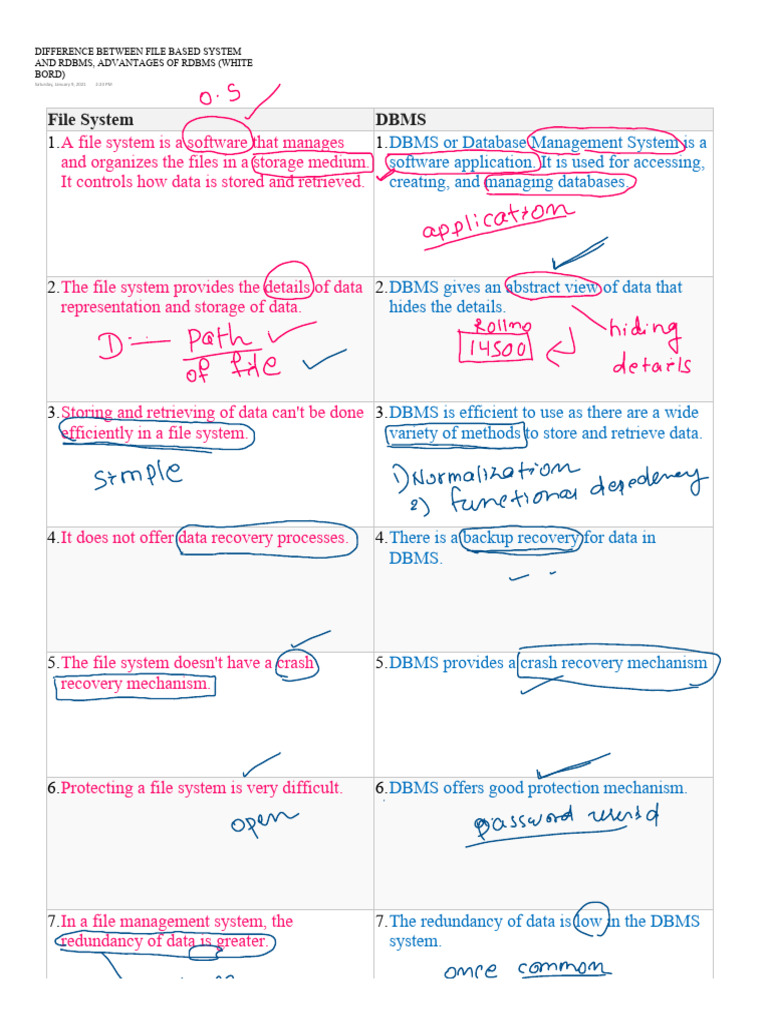 DIFFERENCE BETWEEN FILE BASED SYSTEM
AND RDBMS, ADVANTAGES OF RDBMS (WHITE
BORD)
O.S
File System
DBMS
1.A file system is a software that manages
and organizes the files in a storage medium.
It controls how data is stored and retrieved.
1.DBMS or Database Management System is a
software application. It is used for accessing,
creating, and managing databases.
application
2.The file system provides the details of data
representation and storage of data.
D:- Path
of file
2.DBMS gives an abstract view of data that
hides the details.
Rollno
14500
hiding
details
3.Storing and retrieving of data can't be done
efficiently in a file system.
simple
3.DBMS is efficient to use as there are a wide
variety of methods to store and retrieve data.
1) Normalization
2) functional depedency
4.It does not offer data recovery processes.
4.There is a backup recovery for data in
DBMS.
5.The file system doesn't have a crash
recovery mechanism.
5.DBMS provides a crash recovery mechanism
6.Protecting a file system is very difficult.
open
6.DBMS offers good protection mechanism.
password
7.In a file management system, the
redundancy of data is greater.
7.The redundancy of data is low in the DBMS
system.
once common